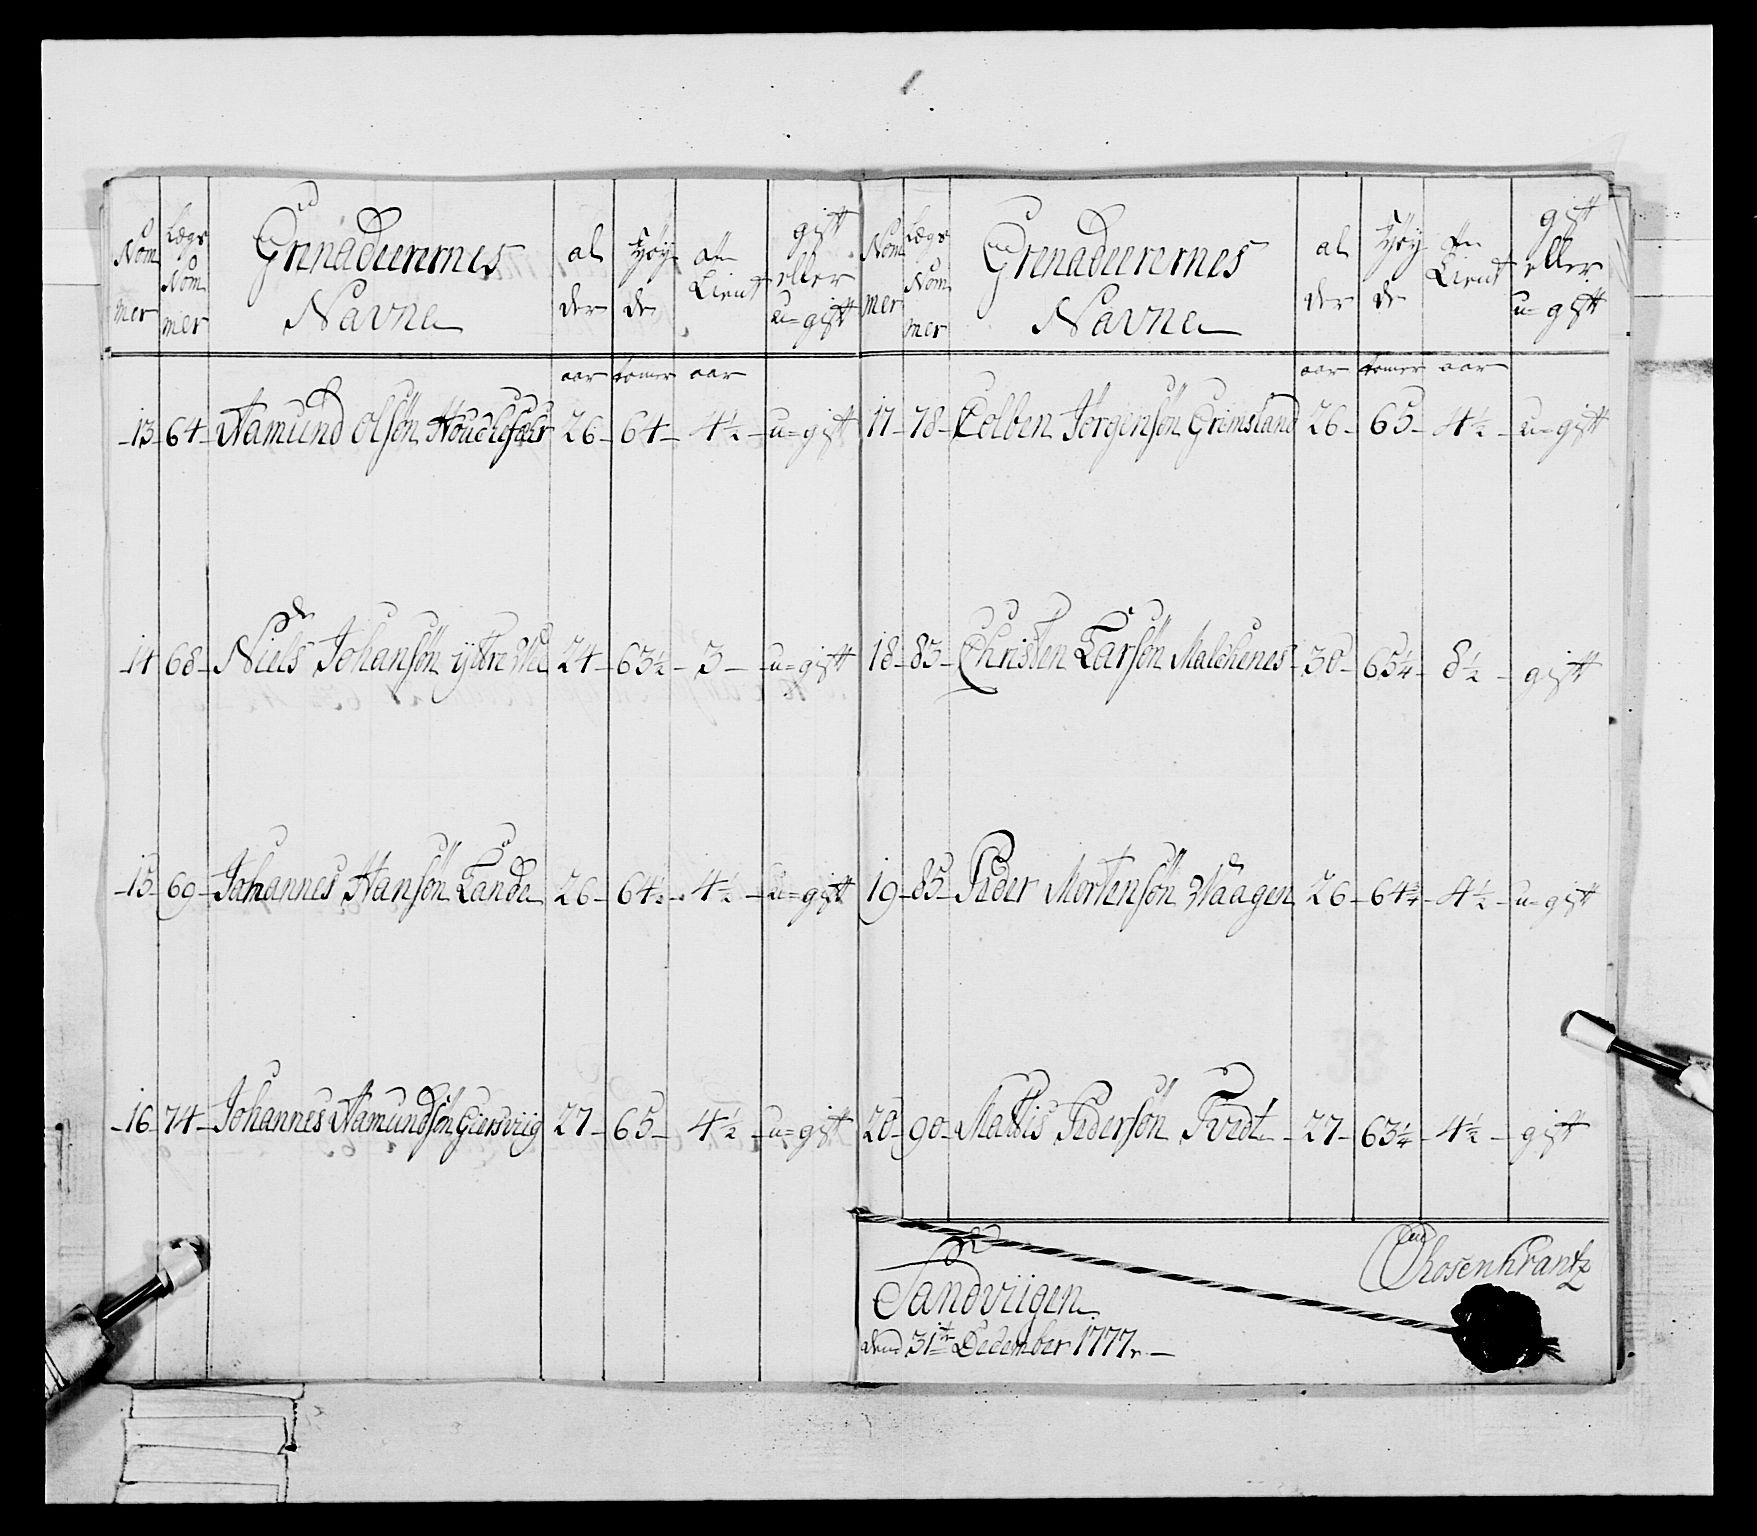 Nom mer | Lægs Nom mer | Grenadeerernes Navne | al der | Høy de | tien Lient | gift eller u=gift
aar | tomer | aar
13 - 64 - Aamund Olsøn - 26 - 64 - 4½ - u=gift
14 - 68 - Niels Johansøn ÿttre - 24 - 63½ - 3 - u=gift
15 - 69 - Johannes Hansøn Lande - 26 - 64½ - 4½ - u=gift
16 - 74 - Johannes Aamundsøn Giersviig - 27 - 65 - 4½ - u=gift
Nom mer | Lægs Nom mer | Grenadeerernes Navne | al der | Høy de | tien Lient | gift eller u=gift
aar | tomer | aar
17 - 78 - Colben Jørgensøn Grimsland - 26 - 65 - 4½ - u=gift
18 - 83 - Christen Larsøn Malchenes - 30 - 65¼ - 8½ - gift
19 - 85 - Peder Mortensøn Waagen - 26 - 64¾ - 4½ - u=gift
20 - 90 - Mattis Pedersøn Tvedt - 27 - 63¼ - 4½ - gift
Rosenkrantz
Sandviigen
dend 31te December 1777